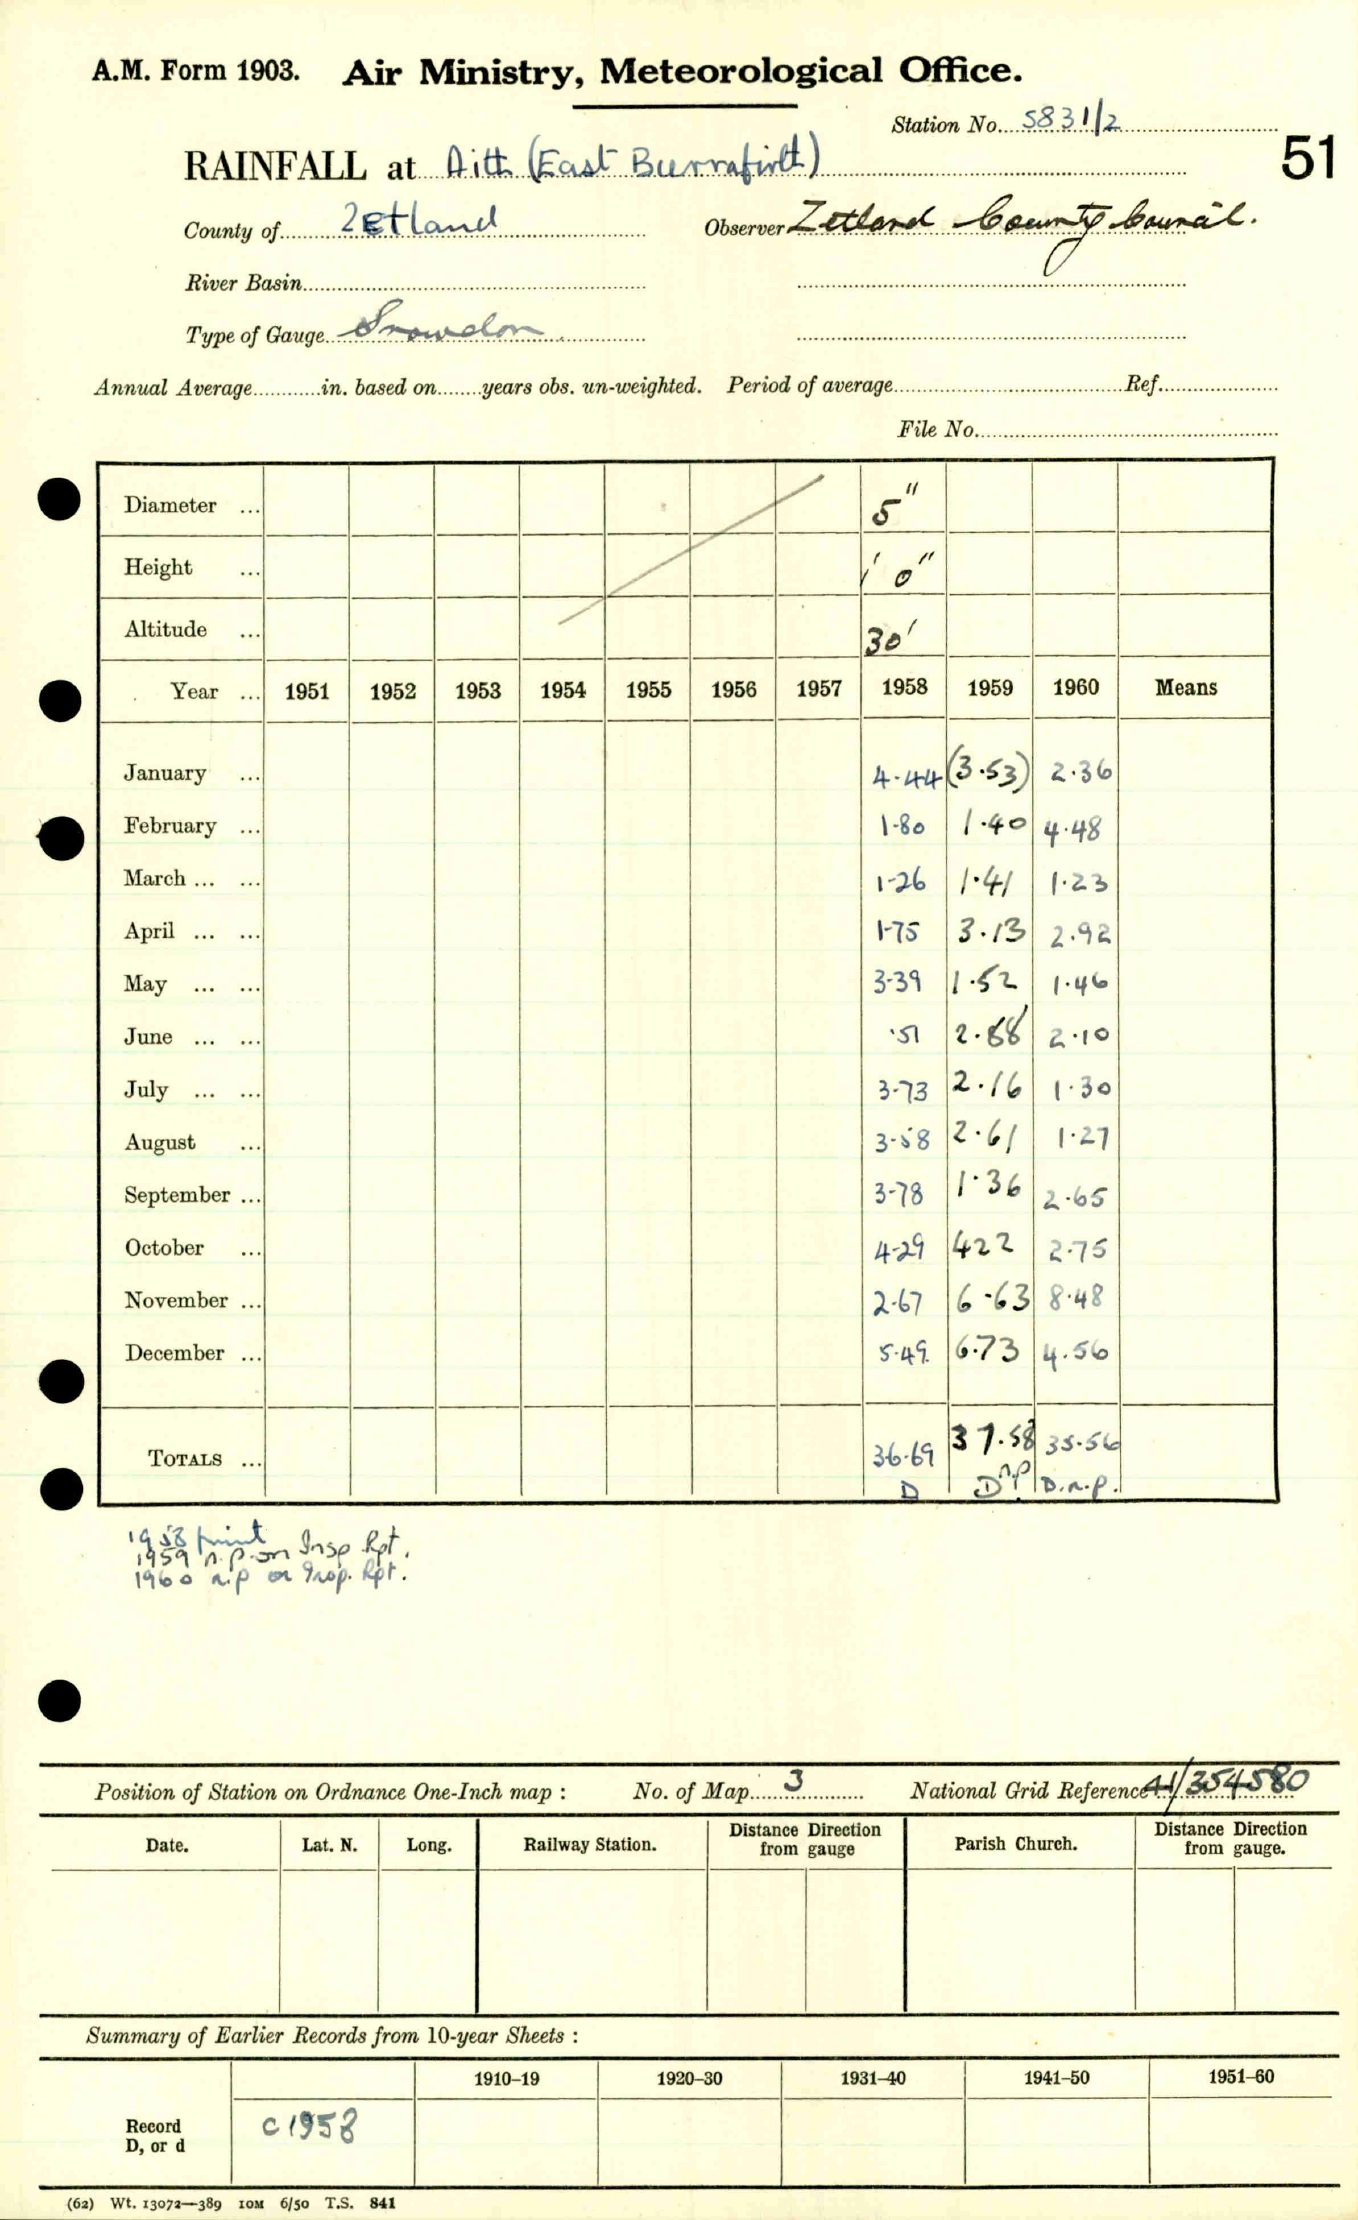 A.M. Form 1903. Air Ministry, Meteorological Office.
Station No. 5831/2
51
RAINFALL at Aith (East Burrafirth)
County of Zetland Observer Zetland County Council.
River Basin
Type of Gauge Snowdon
Annual Average in. based on years obs. un-weighted. Period of average Ref.
File No.
Diameter ... 5"
Height ... 1' 0"
Altitude ... 30'
Year ... 1951 1952 1953 1954 1955 1956 1957 1958 1959 1960 Means
January ... 4.44 (3.53) 2.36
February ... 1.80 1.40 4.48
March ... ... 1.26 1.41 1.23
April ... ... 1.75 3.13 2.92
May ... ... 3.39 1.52 1.46
June ... ... .51 2.88 2.10
July ... ... 3.73 2.16 1.30
August ... 3.58 2.61 1.27
September ... 3.78 1.36 2.65
October ... 4.29 422 2.75
November ... 2.67 6.63 8.48
December ... 5.49 6.73 4.56
TOTALS ... 36.69 37.58 35.56
D D n.p D.n.p.
1958 print
1959 n.p. on Insp Rpt.
1960 n.p on Insp. Rpt.
Position of Station on Ordnance One-Inch map : No. of Map 3 National Grid Reference 41/354580
Date. Lat. N. Long. Railway Station. Distance Direction from gauge Parish Church. Distance Direction from gauge.
Summary of Earlier Records from 10-year Sheets :
1910–19 1920–30 1931–40 1941–50 1951–60
Record D, or d c 1958
(62) Wt. 13072—389 10M 6/50 T.S. 841